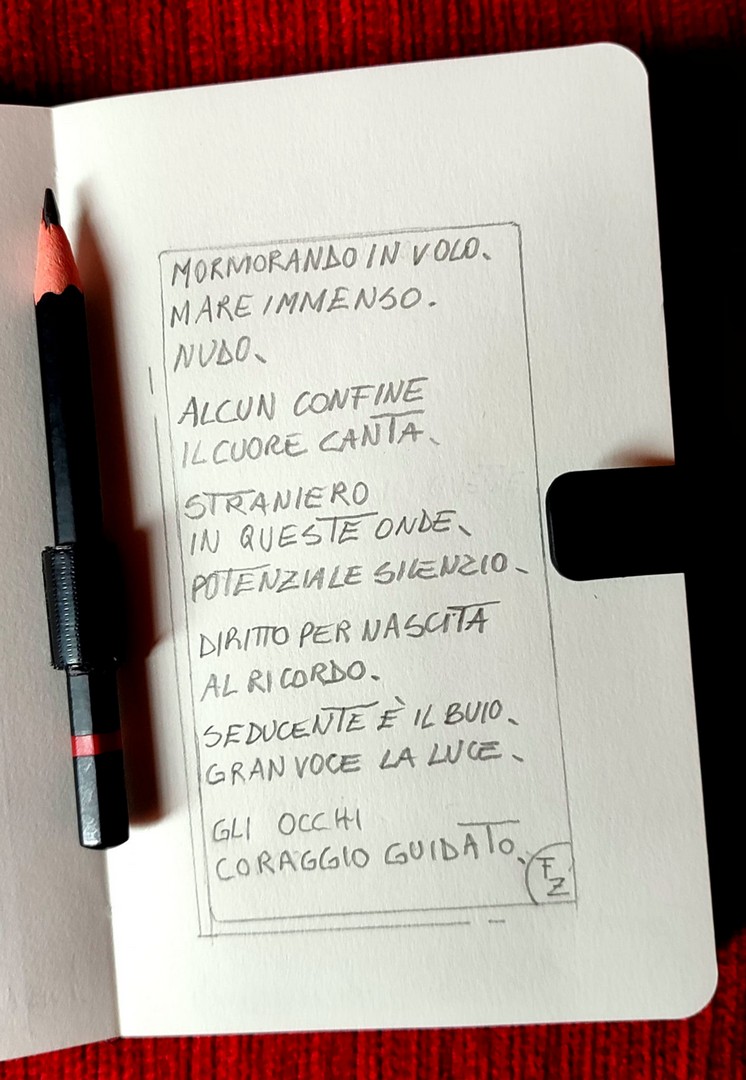 MORMORANDO IN VOLO.
MARE IMMENSO.
NUDO.
ALCUN CONFINE
IL CUORE CANTA.
STRANIERO
IN QUESTE ONDE.
POTENZIALE SILENZIO.
DIRITTO PER NASCITA
AL RICORDO.
SEDUCENTE È IL BUIO.
GRAN VOCE LA LUCE.
GLI OCCHI
CORAGGIO GUIDATO.
FZ